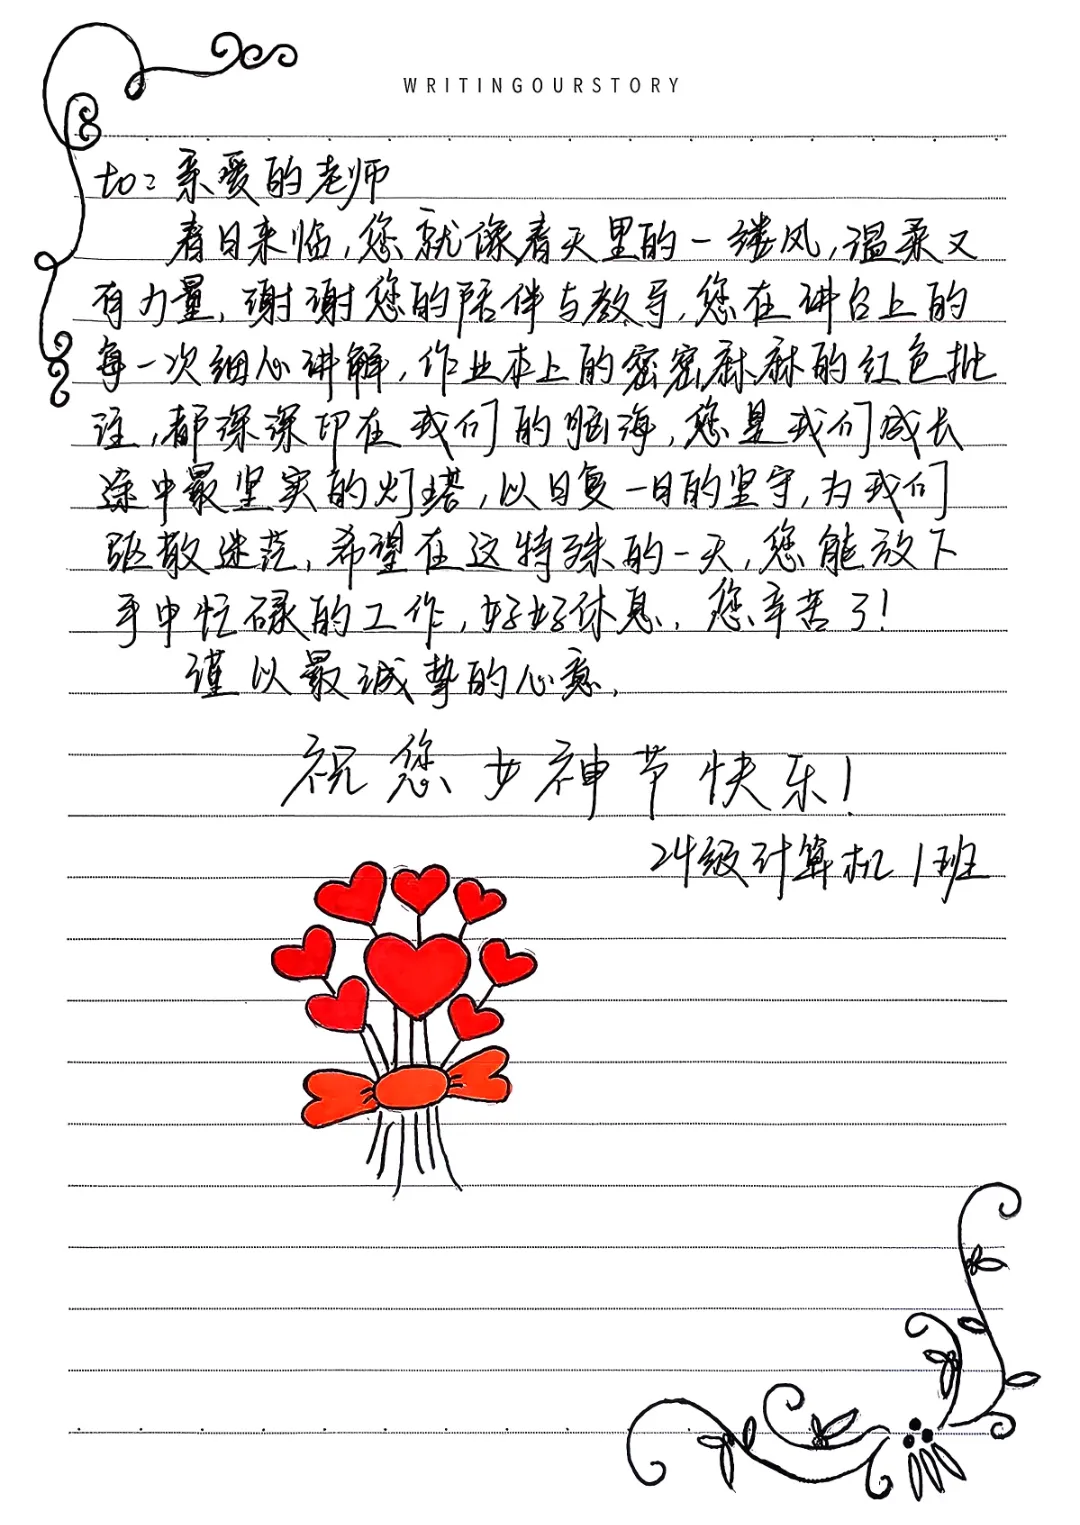 WRITINGOURSTORY
to：亲爱的老师
春日来临，您就像春天里的一缕风，温柔又
有力量，谢谢您的陪伴与教导，您在讲台上的
每一次细心讲解，作业本上的密密麻麻的红色批
注，都深深印在我们的脑海，您是我们成长
途中最坚实的灯塔，以日复一日的坚守，为我们
驱散迷茫，希望在这特殊的一天，您能放下
手中忙碌的工作，好好休息，您辛苦了！
谨以最诚挚的心意，
祝您女神节快乐！
24级计算机1班